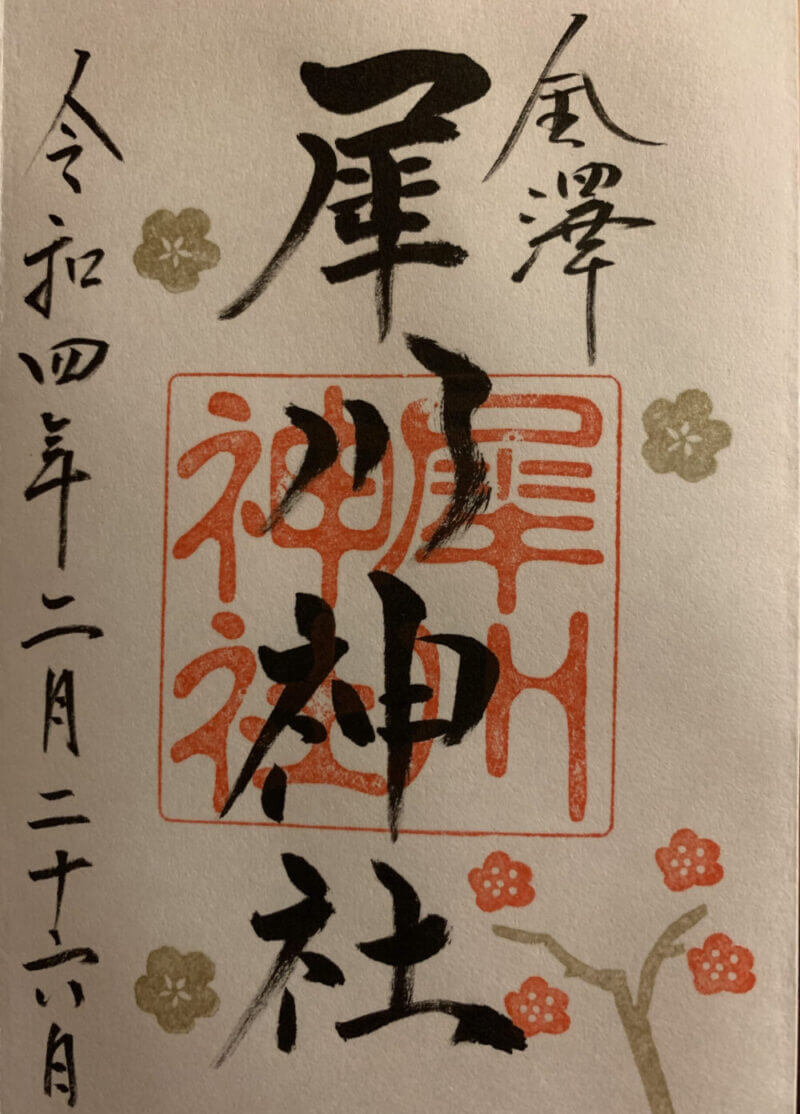 金澤
犀川神社
犀川
神社
令和四年二月二十六月